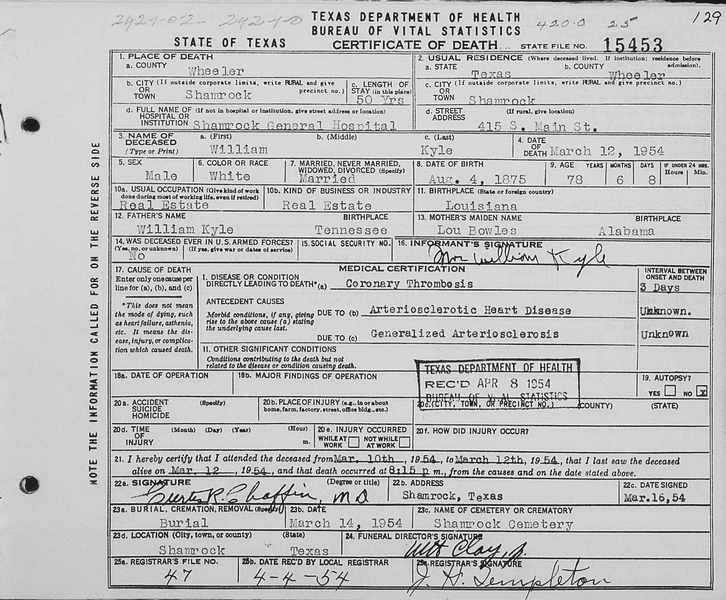 TEXAS DEPARTMENT OF HEALTH
BUREAU OF VITAL STATISTICS
4200 25
129
STATE OF TEXAS CERTIFICATE OF DEATH STATE FILE NO. 15453
1. PLACE OF DEATH
a. COUNTY Wheeler
2. USUAL RESIDENCE (Where deceased lived. If institution: residence before admission).
a. STATE Texas b. COUNTY Wheeler
b. CITY (If outside corporate limits, write RURAL and give precinct no.) OR TOWN Shamrock
c. LENGTH OF STAY (in this place) 50 Yrs
c. CITY (If outside corporate limits, write RURAL and give precinct no.) OR TOWN Shamrock
d. FULL NAME OF (If not in hospital or institution, give street address or location) HOSPITAL OR INSTITUTION Shamrock General Hospital
d. STREET ADDRESS (If rural, give location) 415 S. Main St.
3. NAME OF DECEASED (Type or Print) a. (First) William b. (Middle) c. (Last) Kyle
4. DATE OF DEATH March 12, 1954
5. SEX Male
6. COLOR OR RACE White
7. MARRIED, NEVER MARRIED, WIDOWED, DIVORCED (Specify) Married
8. DATE OF BIRTH Aug. 4, 1875
9. AGE YEARS 78 MONTHS 6 DAYS 8 IF UNDER 24 HRS. Hours Min.
10a. USUAL OCCUPATION (Give kind of work done during most of working life, even if retired) Real Estate
10b. KIND OF BUSINESS OR INDUSTRY Real Estate
11. BIRTHPLACE (State or foreign country) Louisiana
12. FATHER'S NAME William Kyle BIRTHPLACE Tennessee
13. MOTHER'S MAIDEN NAME Lou Bowles BIRTHPLACE Alabama
14. WAS DECEASED EVER IN U.S. ARMED FORCES? (Yes, no, or unknown) No (If yes, give war or dates of service)
15. SOCIAL SECURITY NO.
16. INFORMANT'S SIGNATURE Mrs William Kyle
17. CAUSE OF DEATH
Enter only one cause per line for (a), (b), and (c)
*This does not mean the mode of dying, such as heart failure, asthenia, etc. It means the disease, injury, or complication which caused death.
MEDICAL CERTIFICATION
INTERVAL BETWEEN ONSET AND DEATH
I. DISEASE OR CONDITION DIRECTLY LEADING TO DEATH* (a) Coronary Thrombosis 3 Days
ANTECEDENT CAUSES
Morbid conditions, if any, giving rise to the above cause (a) stating the underlying cause last.
DUE TO (b) Arteriosclerotic Heart Disease Unknown.
DUE TO (c) Generalized Arteriosclerosis Unknown
II. OTHER SIGNIFICANT CONDITIONS
Conditions contributing to the death but not related to the disease or condition causing death.
18a. DATE OF OPERATION
18b. MAJOR FINDINGS OF OPERATION
19. AUTOPSY? YES NO X
TEXAS DEPARTMENT OF HEALTH
REC'D APR 8 1954
BUREAU OF VITAL STATISTICS
20a. ACCIDENT SUICIDE HOMICIDE (Specify)
20b. PLACE OF INJURY (e.g., in or about home, farm, factory, street, office bldg., etc.)
20c. (CITY, TOWN, OR PRECINCT NO.) (COUNTY) (STATE)
20d. TIME OF INJURY (Month) (Day) (Year) (Hour) m.
20e. INJURY OCCURRED WHILE AT WORK NOT WHILE AT WORK
20f. HOW DID INJURY OCCUR?
21. I hereby certify that I attended the deceased from Mar. 10th, 1954, to March 12th, 1954, that I last saw the deceased
alive on Mar. 12, 1954, and that death occurred at 8:15 p m., from the causes and on the date stated above.
22a. SIGNATURE (Degree or title) Curtis R. Chaffin, MD
22b. ADDRESS Shamrock, Texas
22c. DATE SIGNED Mar.16,54
23a. BURIAL, CREMATION, REMOVAL (Specify) Burial
23b. DATE March 14, 1954
23c. NAME OF CEMETERY OR CREMATORY Shamrock Cemetery
23d. LOCATION (City, town, or county) (State) Shamrock Texas
24. FUNERAL DIRECTOR'S SIGNATURE Clay
25a. REGISTRAR'S FILE NO. 47
25b. DATE REC'D BY LOCAL REGISTRAR 4-4-54
25c. REGISTRAR'S SIGNATURE J. H. Templeton
NOTE THE INFORMATION CALLED FOR ON THE REVERSE SIDE